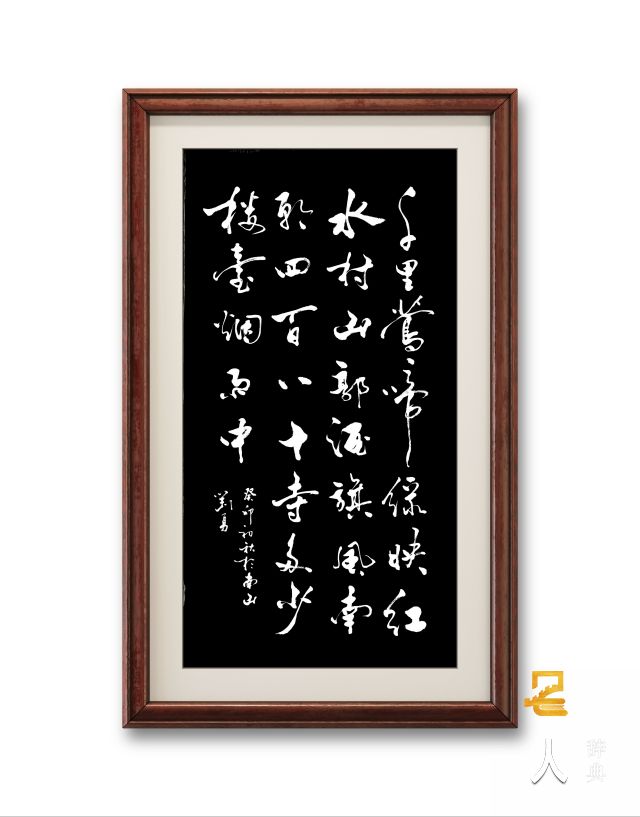 千里鶯啼綠映紅
水村山郭酒旗風南
朝四百八十寺多少
楼臺烟雨中
癸卯初秋於南山
劉勇
名人
辞典